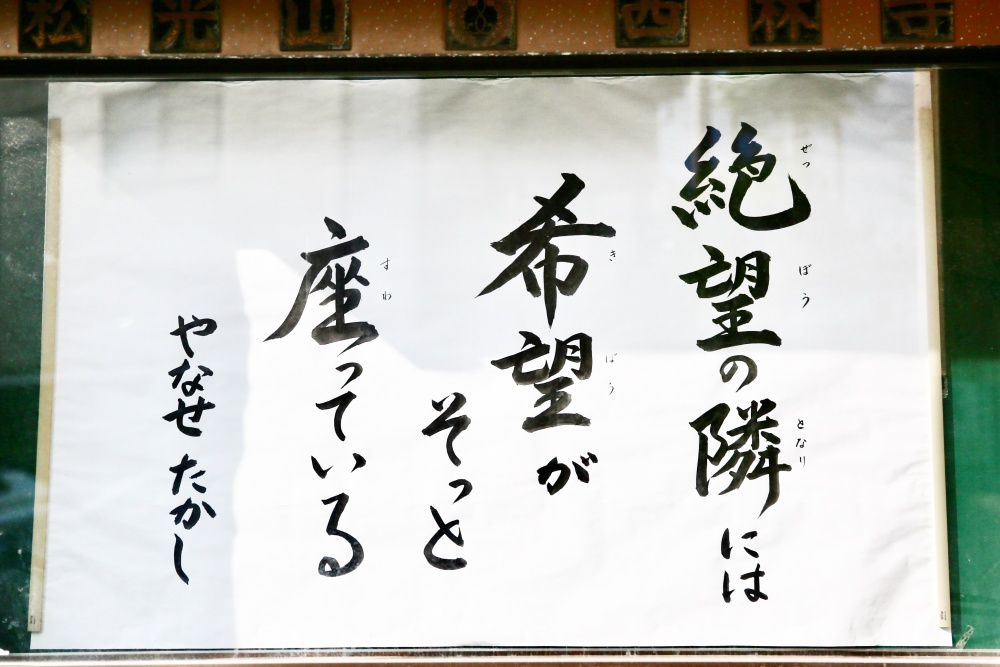 松光山 西林寺
絶望の隣には
ぜつ ぼう となり
希望が
き ぼう
そっと
座っている
すわ
やなせ たかし